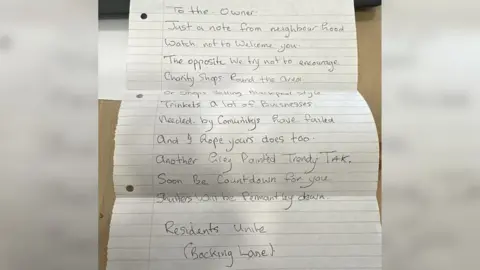 To the Owner
Just a note from neighbour Hood
Watch not to Welcome you.
The opposite We try not to encourage
Charity Shops Round the area
Or Shops Selling Blackpool style
Trinkets A lot of Buisnesses
Needed by Comunitys have failed
And I Hope yours does too.
Another Grey Painted Trendy TAK.
Soon Be Countdown for you
Shutters Will be Permantley down
Residents Unite
(Backing Lane)